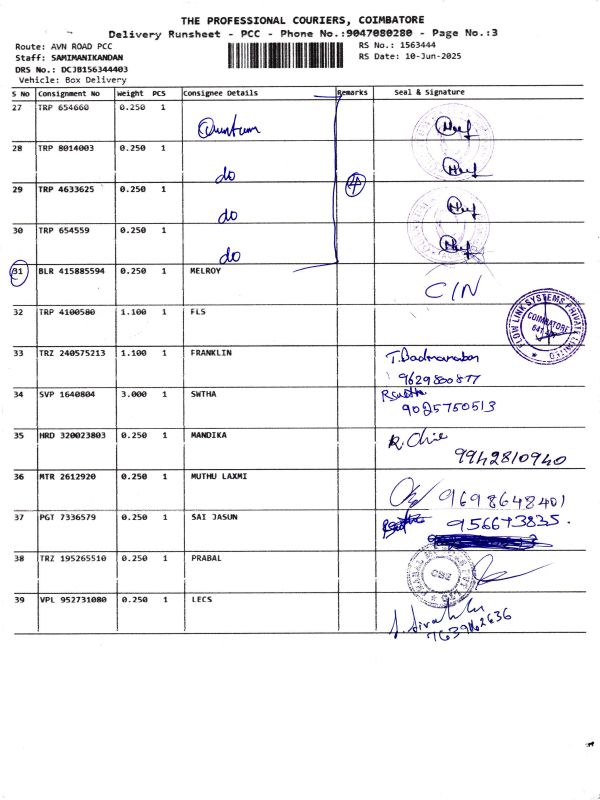 THE PROFESSIONAL COURIERS, COIMBATORE
Delivery Runsheet - PCC - Phone No.:9047080280 - Page No.:3
Route: AVN ROAD PCC
Staff: SAMIMANIKANDAN
DRS No.: DCJB156344403
Vehicle: Box Delivery
RS No.: 1563444
RS Date: 10-Jun-2025
S No Consignment No Weight PCS Consignee Details Remarks Seal & Signature
27 TRP 654660 0.250 1 Quantum
28 TRP 8014003 0.250 1 do
29 TRP 4633625 0.250 1 do 4
30 TRP 654559 0.250 1 do
31 BLR 415885594 0.250 1 MELROY C/N
32 TRP 4100580 1.100 1 FLS FLOW LINK SYSTEMS PRIVATE LIMITED COIMBATORE
33 TRZ 240575213 1.100 1 FRANKLIN
9629800877
34 SVP 1640804 3.000 1 SWTHA
9025750513
35 HRD 320023803 0.250 1 MANDIKA
9942810940
36 MTR 2612920 0.250 1 MUTHU LAXMI 9698648401
37 PGT 7336579 0.250 1 SAI JASUN
38 TRZ 195265510 0.250 1 PRABAL
39 VPL 952731080 0.250 1 LECS